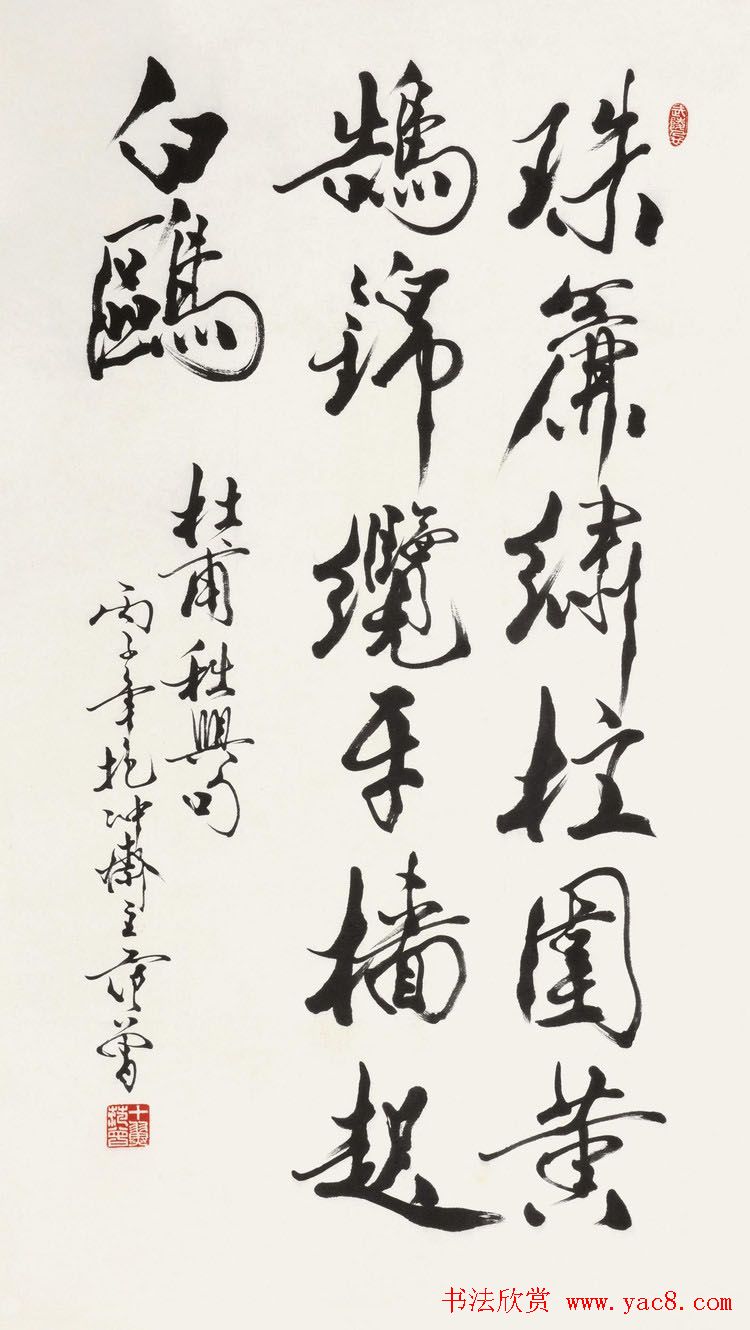 珠簾繡柱圍黃
鵠錦纜牙檣起
白鷗
杜甫秋興句
丙子年抱沖齋主范曾
十翼范曾
书法欣赏 www.yac8.com